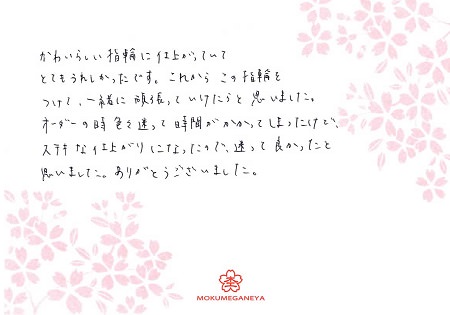 かわいらしい指輪に仕上がっていて
とてもうれしかったです。これから この指輪を
つけて、一緒に頑張っていけたらと思いました。
オーダーの時色を迷って時間がかかってしまったけど、
ステキな仕上がりになったので、迷って良かったと
思いました。ありがとうございました。
MOKUMEGANEYA